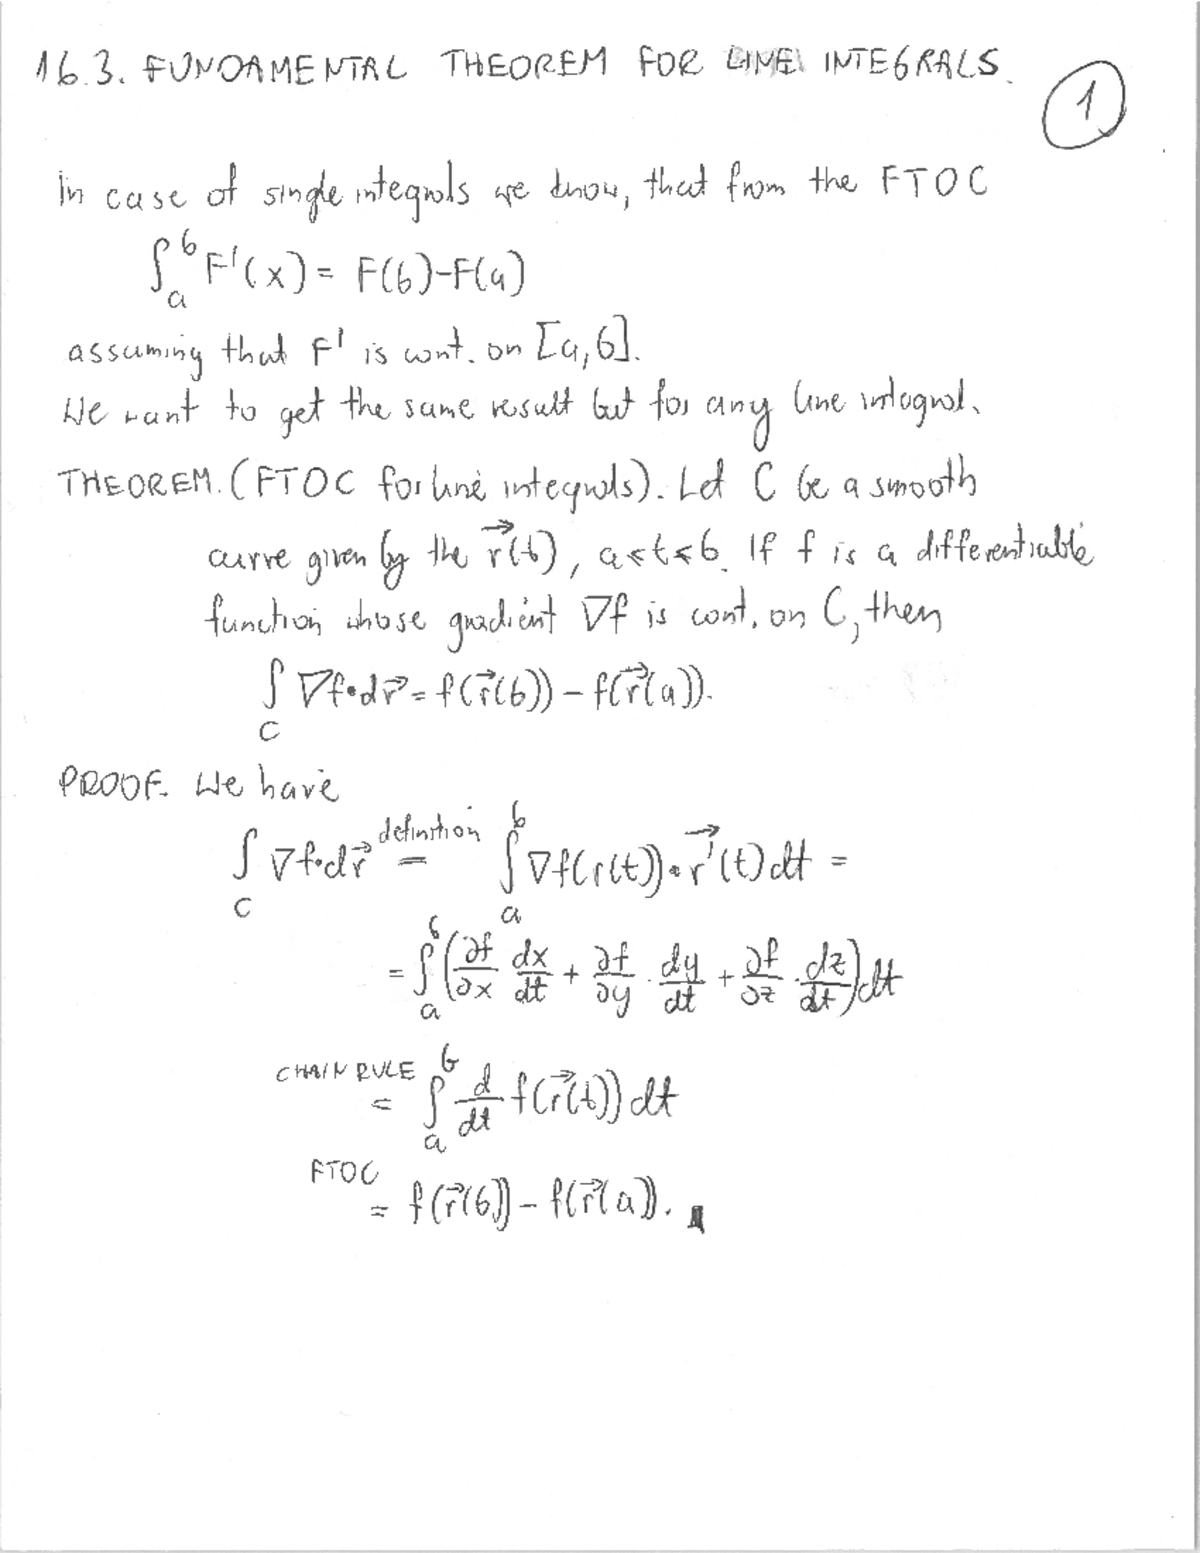 16.3. FUNDAMENTAL THEOREM FOR LINE INTEGRALS.
1
In case of single integrals we know, that from the FTOC
∫_a^b F'(x) = F(b)-F(a)
assuming that F' is cont. on [a,b].
We want to get the same result but for any line integral.
THEOREM. (FTOC for line integrals). Let C be a smooth
curve given by the r⃗(t), a≤t≤b. If f is a differentiable
function whose gradient ∇f is cont. on C, then
∫_C ∇f•dr⃗ = f(r⃗(b)) – f(r⃗(a)).
PROOF. We have
∫_C ∇f•dr⃗ =^{definition} ∫_a^b ∇f(r(t))•r⃗'(t)dt =
= ∫_a^b (∂f/∂x dx/dt + ∂f/∂y · dy/dt + ∂f/∂z · dz/dt)dt
CHAIN RULE = ∫_a^b d/dt f(r⃗(t)) dt
FTOC = f(r⃗(b)) – f(r⃗(a)). ∎